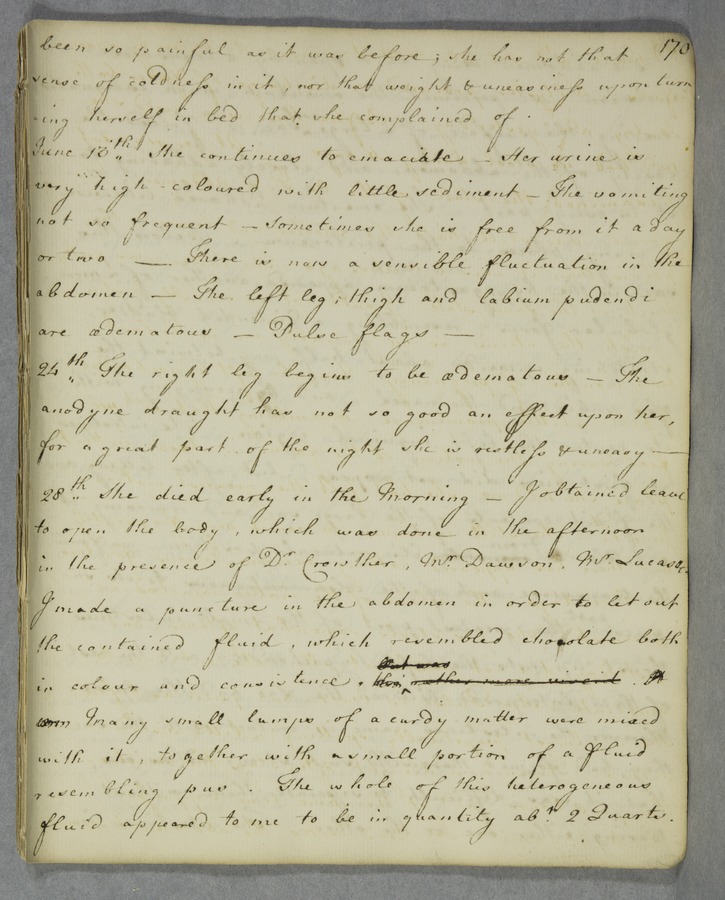 170
been so painful as it was before; she has not that
sense of coldness in it, nor that weight & uneasiness upon turn
-ing herself in bed that she complained of.
June 18th She continues to emaciate – Her urine is
very high-coloured with little sediment – The vomiting
not so frequent – sometimes she is free from it a day
or two — There is now a sensible fluctuation in the
abdomen – The left leg, thigh and labium pudendi
are œdematous – Pulse flags –
24th The right leg begins to be œdematous – The
anodyne draught has not so good an effect upon her,
for a great part of the night she is restless & uneasy —
28th She died early in the Morning – I obtained leave
to open the body, which was done in the afternoon
in the presence of Dr Crowther, Mr Dawson, Mr Lucas &c.
I made a puncture in the abdomen in order to let out
the contained fluid, which resembled chocolate both
but was
in colour and consistence, rather more viscid.
Many small lumps of a curdy matter were mixed
with it, together with a small portion of a fluid
resembling pus. The whole of this heterogeneous
fluid appeared to me to be in quantity abt 2 Quarts.